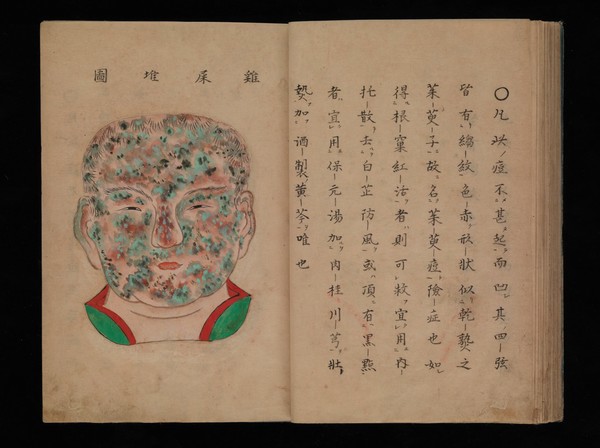 〇凡此痘不甚起而凹其四弦
皆有縐紋色赤形狀似乾熟之
茱萸子故名茱萸痘險症也如
得根窠紅活者則可救宜用内
托散去白芷防風或頂有黒點
者宜用保元湯加内桂川芎壯
熱加酒製黄芩唯也
雞屎堆圖